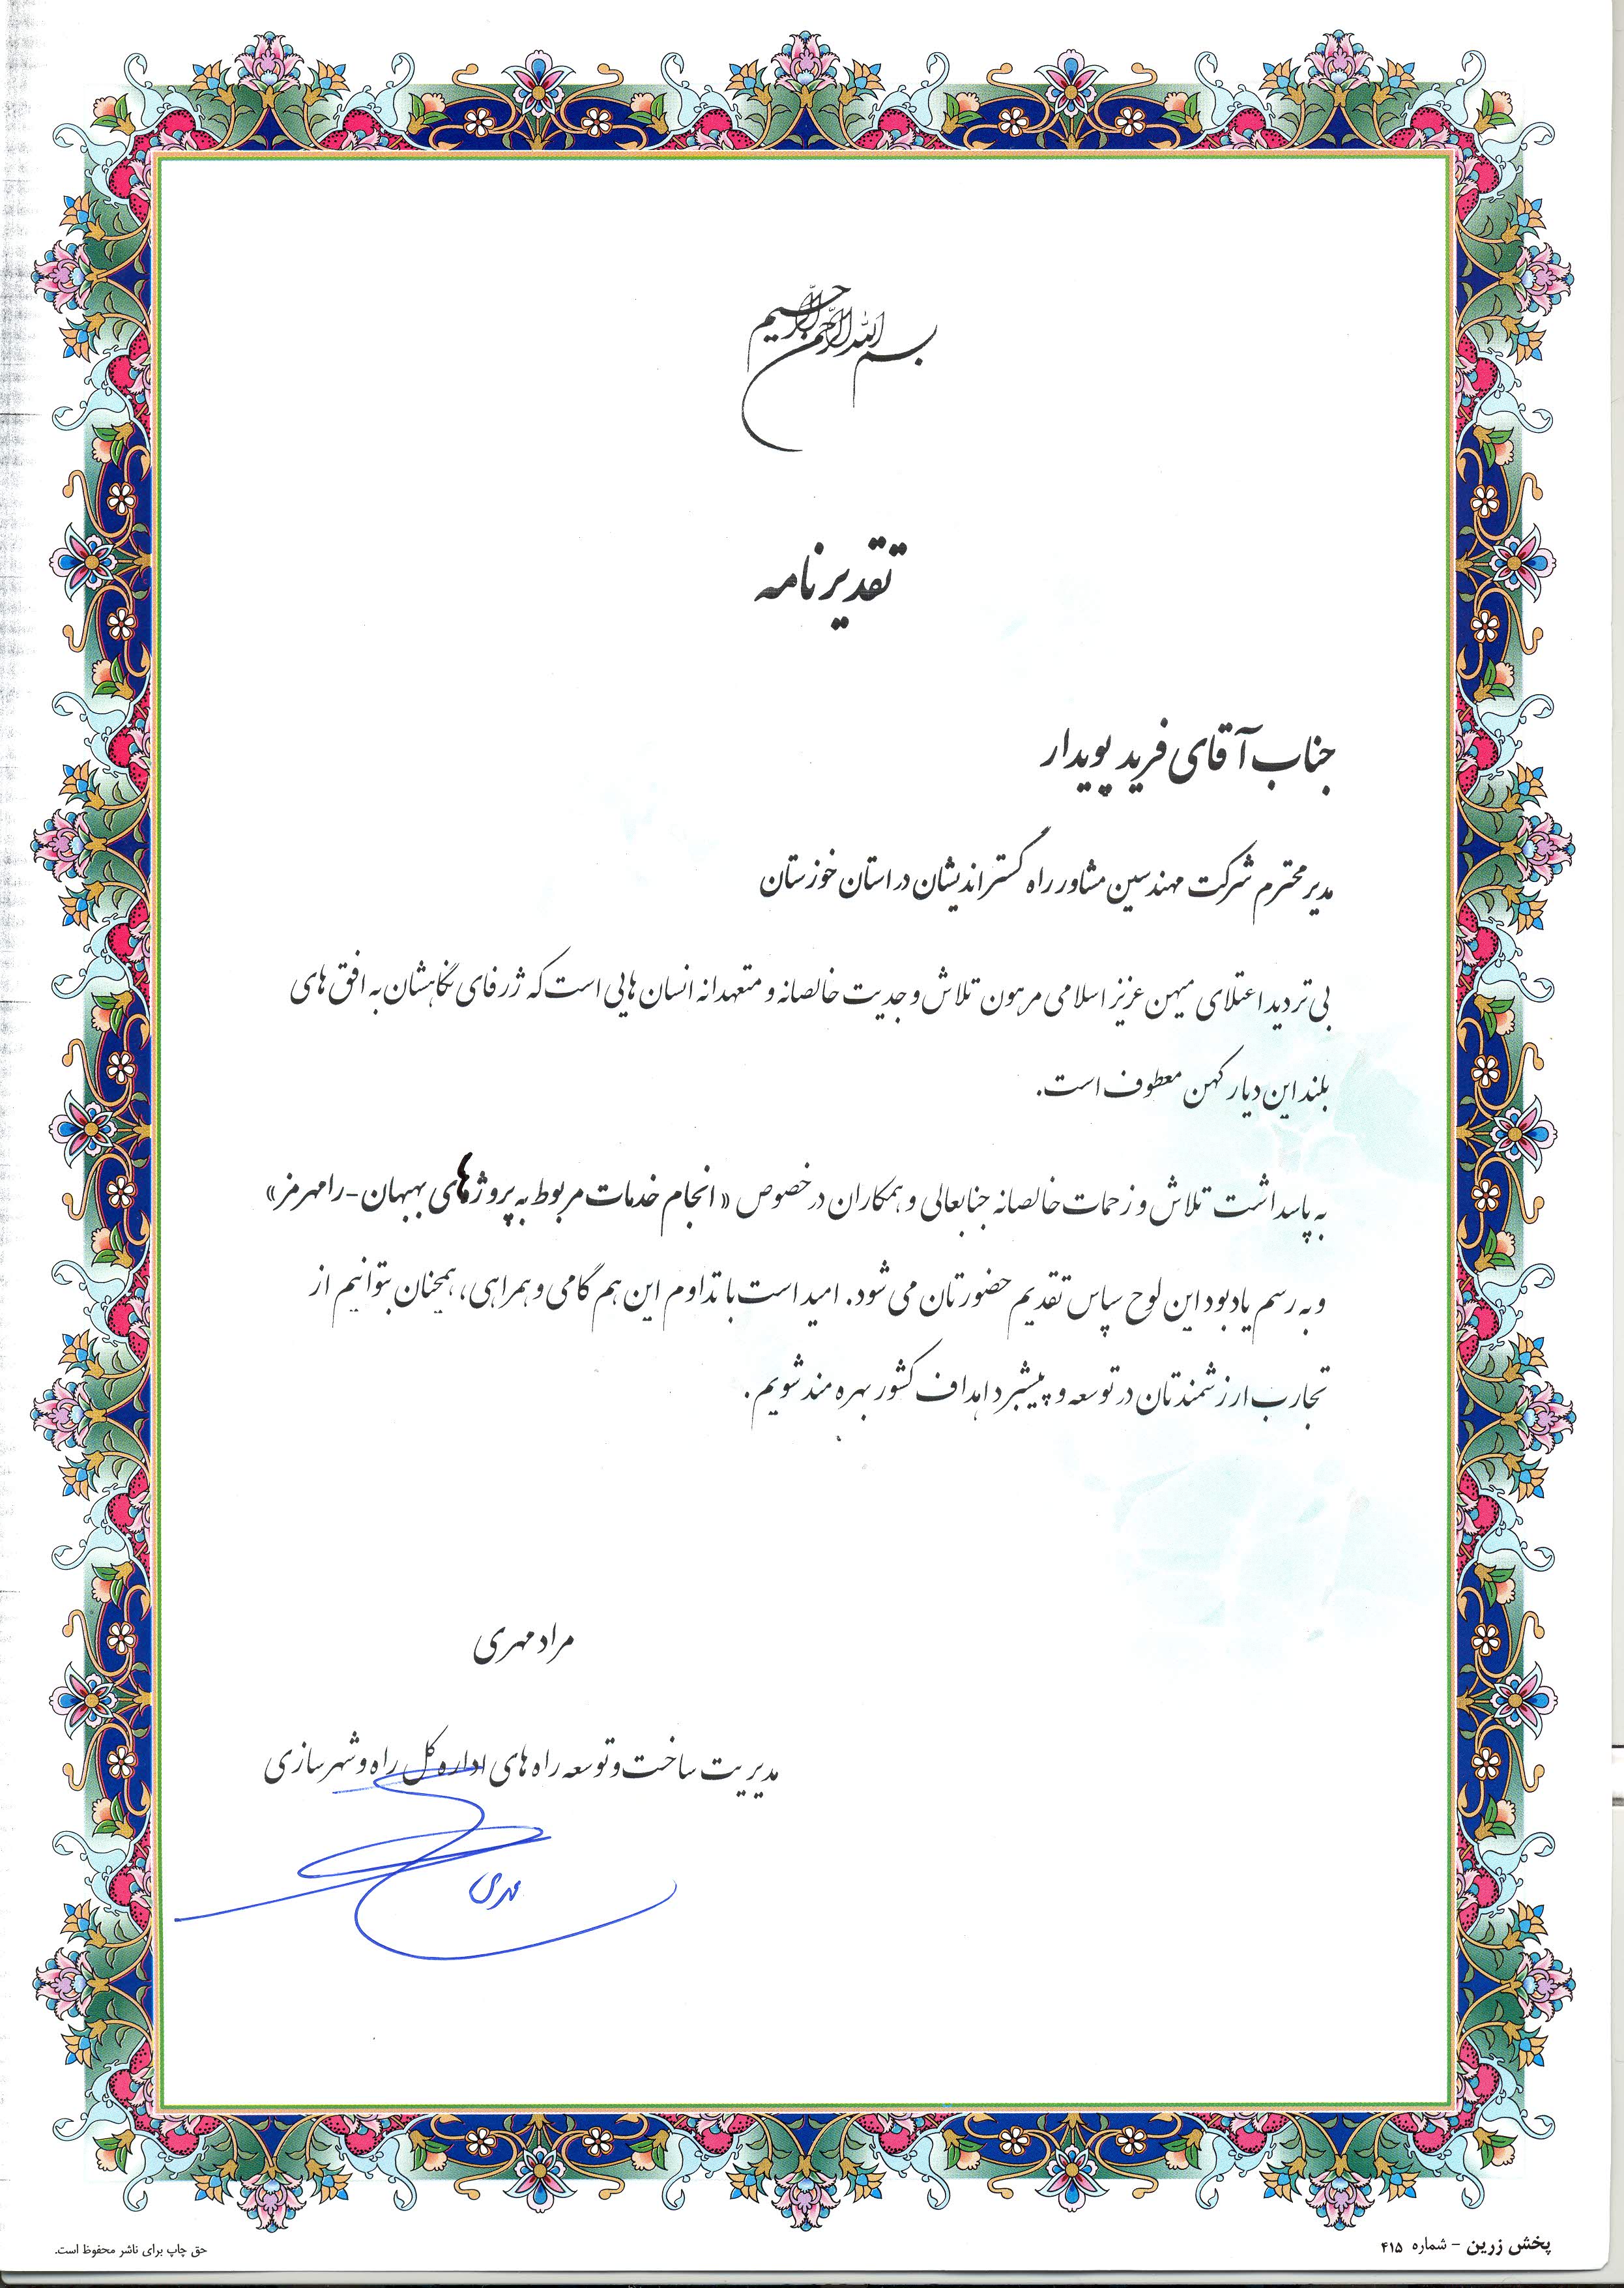 بسم الله الرحمن الرحیم
تقدیرنامه
جناب آقای فرید پویدار
مدیر محترم شرکت مهندسین مشاور راه گستر اندیشان در استان خوزستان
بی تردید اعتلای میهن عزیز اسلامی مرهون تلاش و جدیت خالصانه و متعهدانه انسان هایی است که ژرفای نگاهشان به افق های
بلند این دیار کهن معطوف است.
به پاسداشت تلاش و زحمات خالصانه جنابعالی و همکاران در خصوص «انجام خدمات مربوط به پروژه های بهبهان-رامهرمز»
و به رسم یادبود این لوح سپاس تقدیم حضورتان می شود. امید است با تداوم این هم گامی و همراهی، همچنان بتوانیم از
تجارب ارزشمندتان در توسعه و پیشبرد اهداف کشور بهره مند شویم.
مراد مهری
مدیریت ساخت و توسعه راه های اداره کل راه و شهرسازی
مهری
پخش زرین - شماره ۴۱۵
حق چاپ برای ناشر محفوظ است.